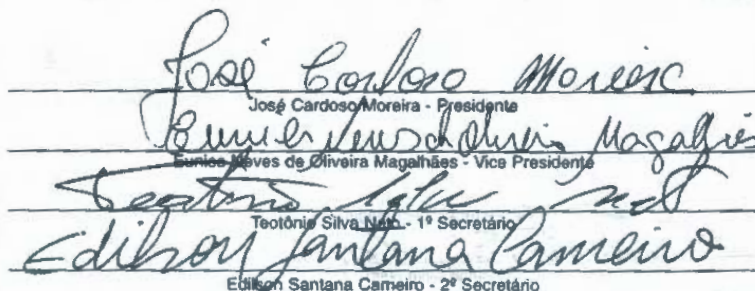 José Cardoso Moreira
José Cardoso Moreira - Presidente
Eunice Neves de Oliveira Magalhães
Eunice Neves de Oliveira Magalhães - Vice Presidente
Teotônio Silva Neto
Teotônio Silva Neto - 1º Secretário
Edilson Santana Carneiro
Edilson Santana Carneiro - 2º Secretário